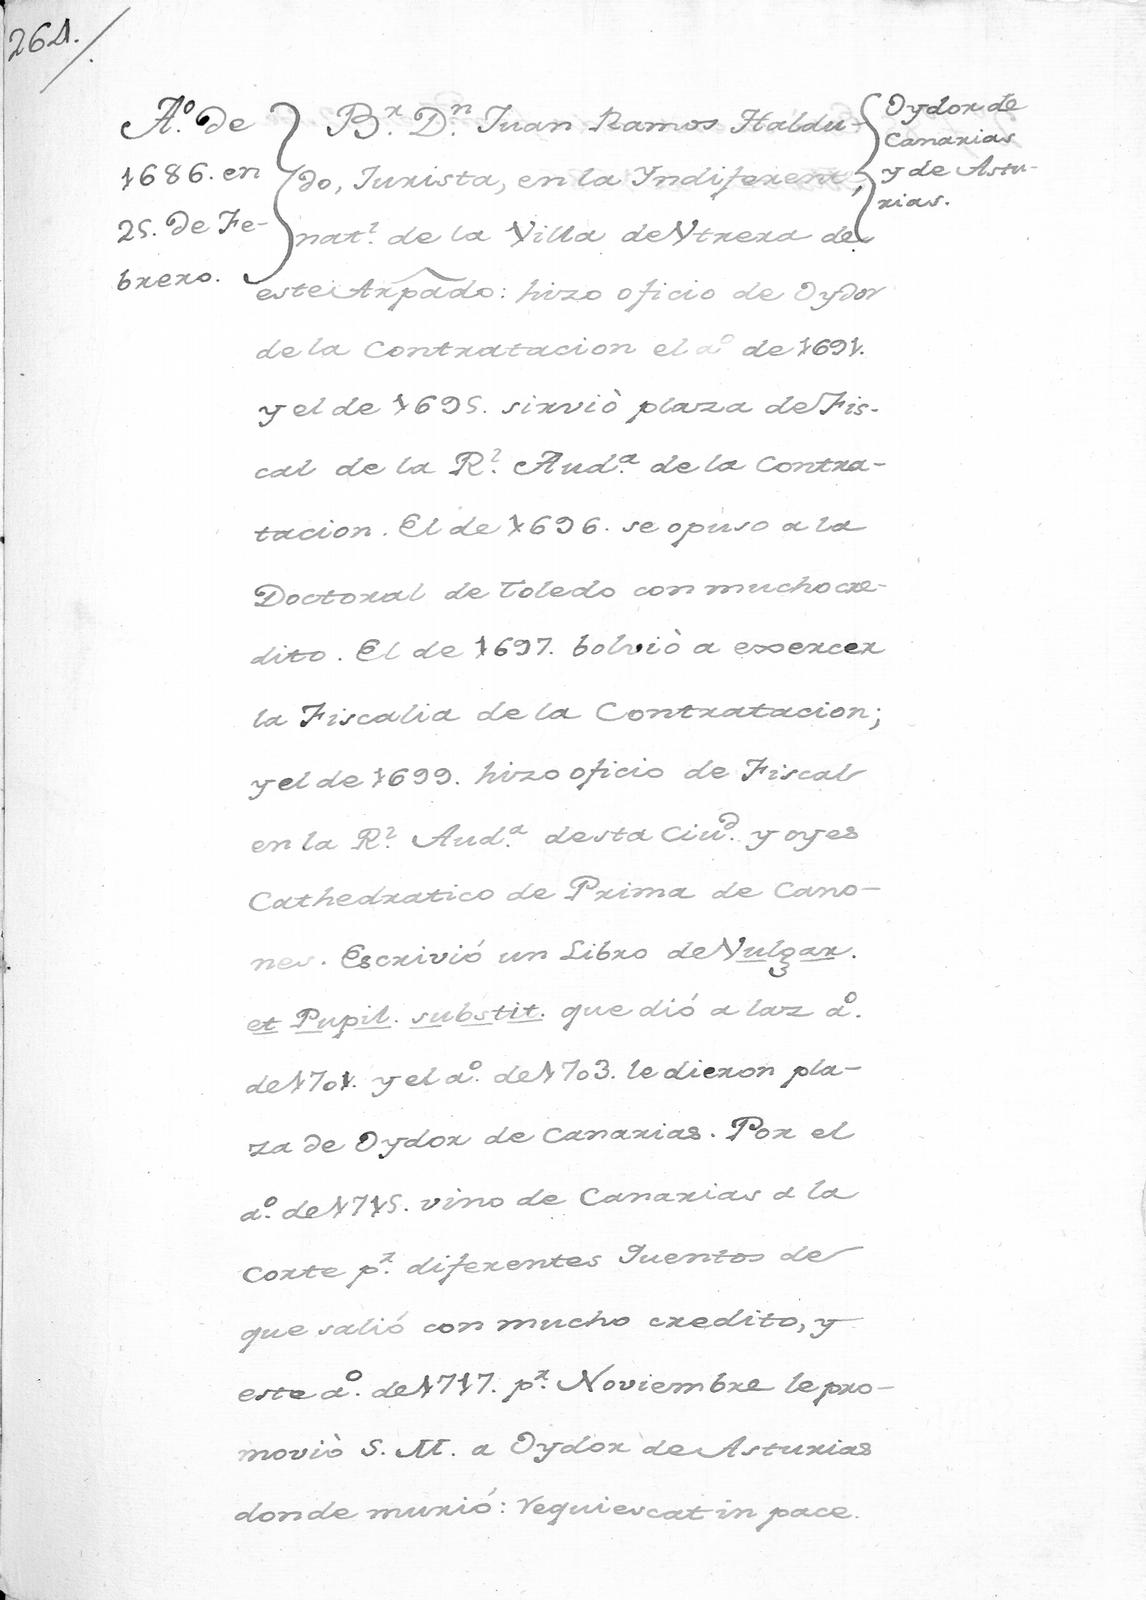 264./
Aº. de
1686. en
25. de Fe-
brero.
Br. Dn. Juan Ramos Haldu-
do, Jurista, en la Indiferent,
natl. de la Villa de Vtrera de
este Arpado: hizo oficio de Oydor
de la Contratacion el aº de 1691.
y el de 1695. sirviò plaza de Fis-
cal de la Rl. Auda. de la Contra-
tacion. El de 1696. se opuso a la
Doctoral de Toledo con mucho cre-
dito. El de 1697. bolviò a exercer
la Fiscalia de la Contratacion;
y el de 1699. hizo oficio de Fiscal
en la Rl. Auda. desta Ciud. y oyes
Cathedratico de Prima de Cano-
nes. Escrivió un Libro de Vulgar.
et Pupil. substit. que dió a luz aº.
de 1701. y el aº. de 1703. le dieron pla-
za de Oydor de Canarias. Por el
aº. de 1715. vino de Canarias a la
Corte pr. diferentes Quentos de
que salió con mucho credito, y
este aº. de 1717. pr. Noviembre le pro-
moviò S. M. a Oydor de Asturias
donde murió: requiescat in pace.
Oydor de
Canarias
y de Astu-
rias.